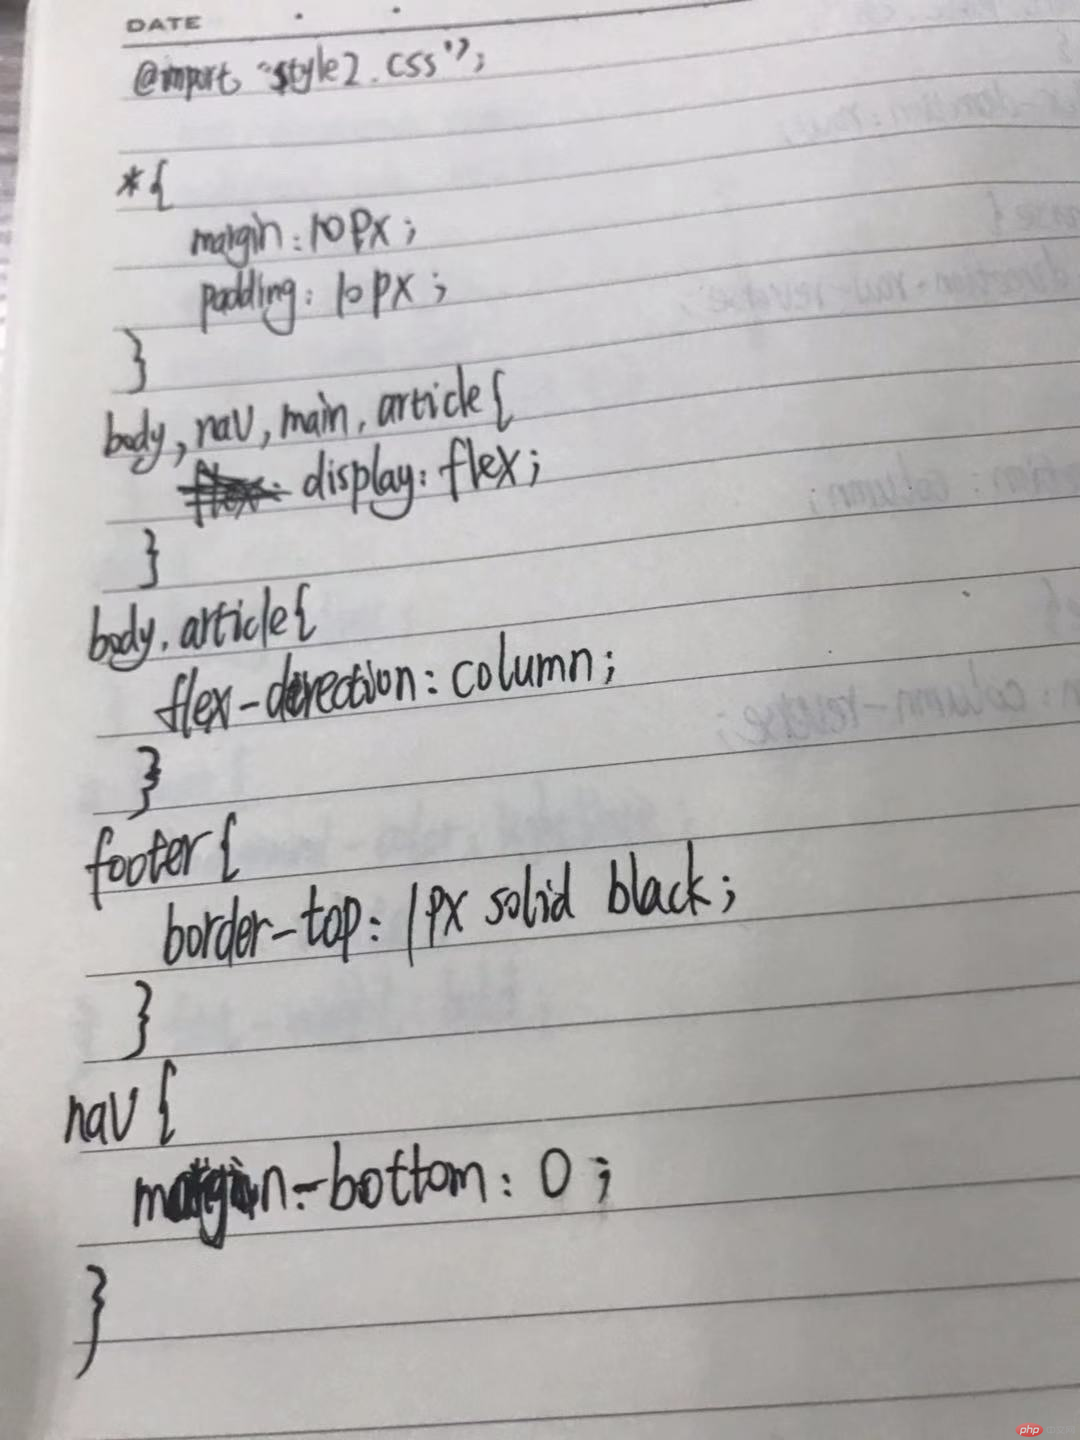 DATE
@import "style2.css";
*{
margin:10px;
padding:10px;
}
body,nav,main,article{
display:flex;
}
body,article{
flex-direction:column;
}
footer{
border-top:1px solid black;
}
nav{
margin-bottom:0;
}
php